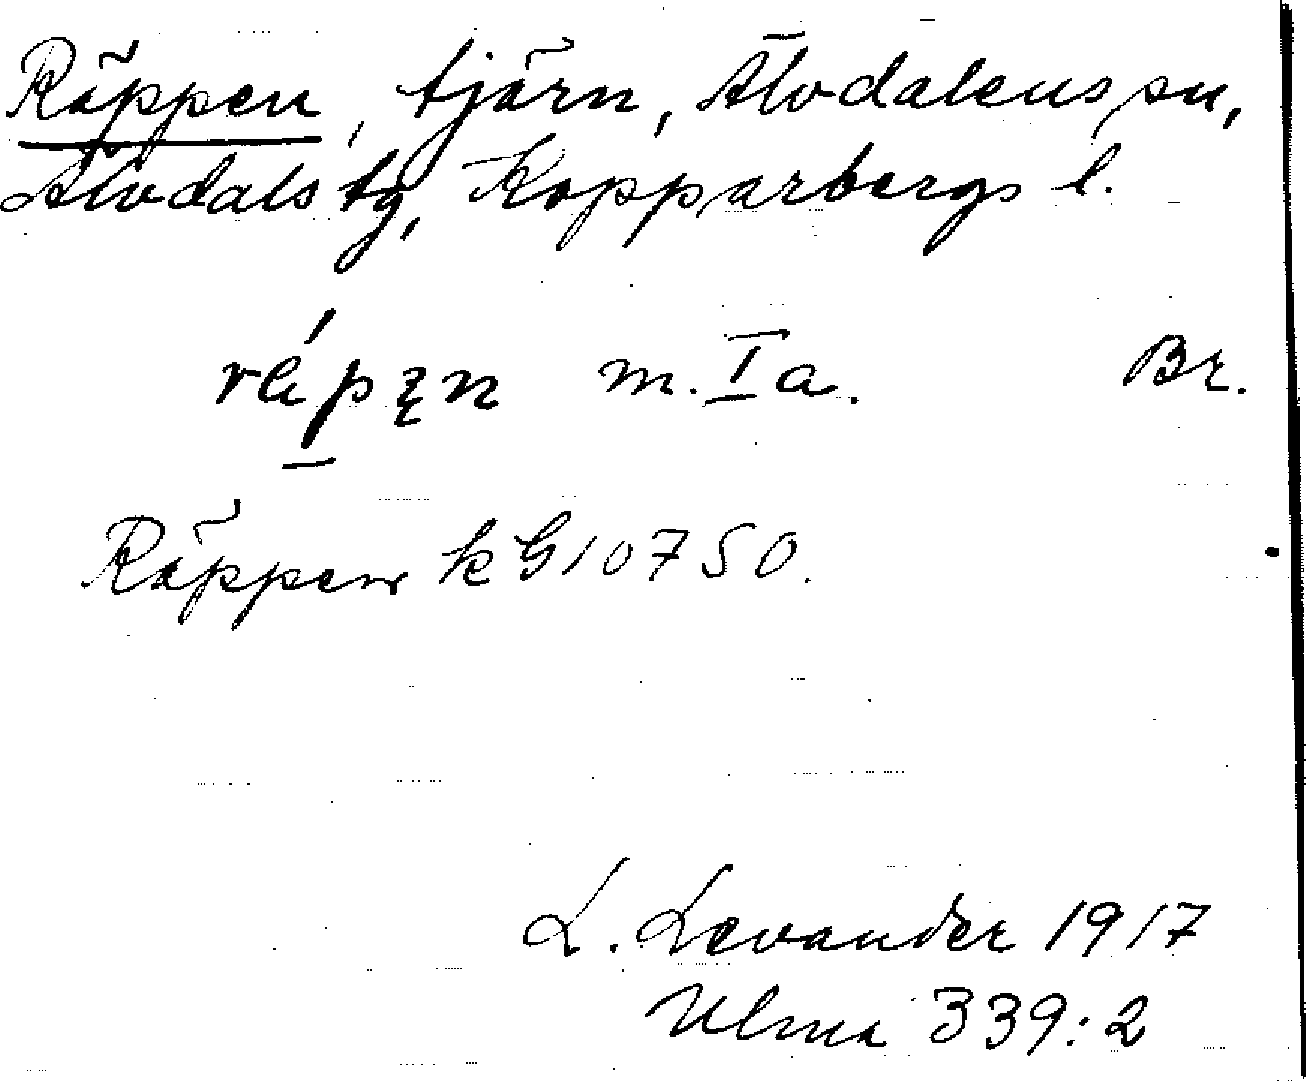 Räppen, tjärn, Älvdalens sn,
Älvdals tg, Kopparbergs l.
m. I a. Br.
Räppen k G 10750.
L. Levander 1917
Ulma 339:2